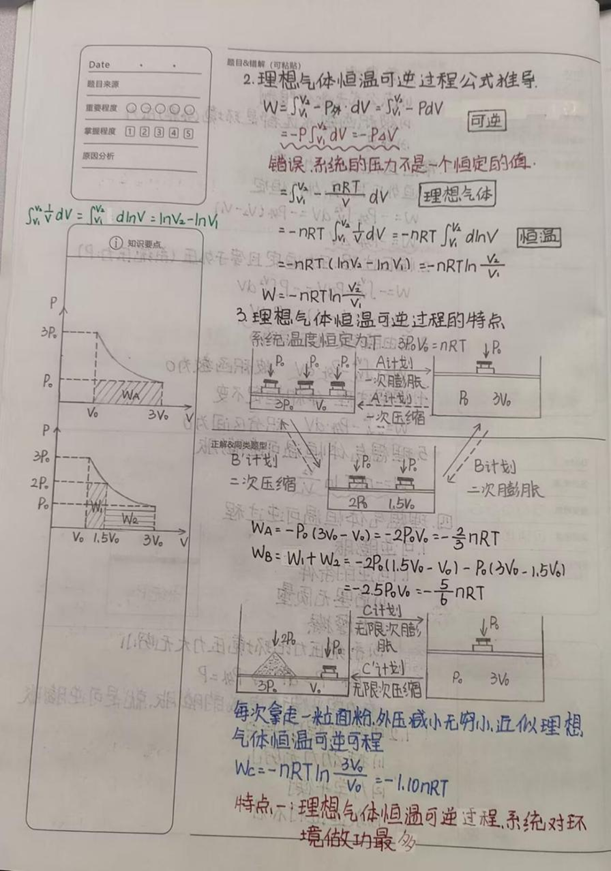 Date · ·
题目来源
重要程度
掌握程度 1 2 3 4 5
原因分析
∫V₁^V₂ 1/V dV = ∫V₁^V₂ dlnV = lnV₂-lnV₁
① 知识要点
P
3P₀
P₀
WA
V₀
3V₀
V
P
3P₀
2P₀
P₀
W₁
W₂
V₀ 1.5V₀ 3V₀ V
题目&错解（可粘贴）
2. 理想气体恒温可逆过程公式推导.
W=∫V₁^V₂ -P外·dV=∫V₁^V₂ -PdV
可逆
=-P∫V₁^V₂ dV=-PΔV
错误.系统的压力不是一个恒定的值.
=∫V₁^V₂ -nRT/V dV
理想气体
=-nRT∫V₁^V₂ 1/V dV=-nRT∫V₁^V₂ dlnV
恒温
=-nRT·(lnV₂-lnV₁)=-nRTln V₂/V₁
W=-nRTln V₂/V₁
3. 理想气体恒温可逆过程的特点
系统温度恒定为T. 3P₀V₀=nRT
P₀ P₀ P₀
A计划
一次膨胀
A'计划
一次压缩
3P₀ V₀
P₀
P₀ 3V₀
正解&同类题型
B'计划
二次压缩
P₀ P₀
2P₀ 1.5V₀
B计划
二次膨胀
WA=-P₀(3V₀-V₀)=-2P₀V₀=-2/3 nRT
WB=W₁+W₂=-2P₀(1.5V₀-V₀)-P₀(3V₀-1.5V₀)
=-2.5P₀V₀=-5/6 nRT
2P₀
P₀
3P₀ V₀
C计划
无限次膨胀
C'计划
无限次压缩
P₀
P₀ 3V₀
每次拿走一粒面粉.外压减小无穷小.近似理想
气体恒温可逆可程
WC=-nRTln 3V₀/V₀=-1.10nRT
特点一:理想气体恒温可逆过程.系统对环
境做功最多